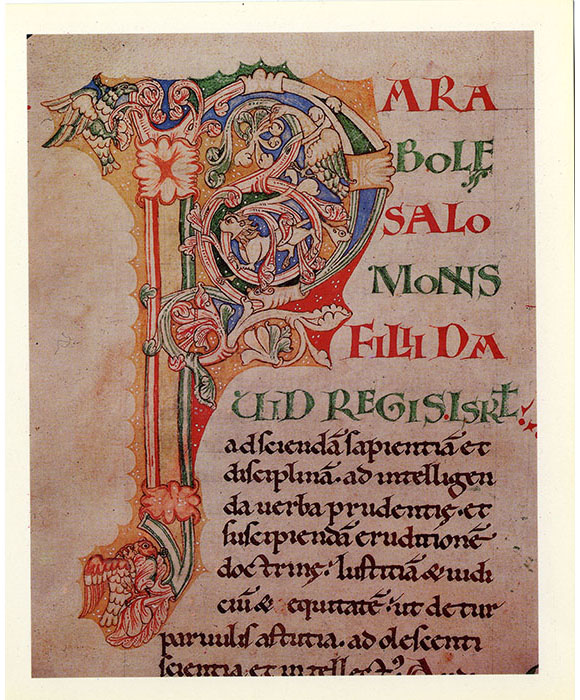 PARA
BOLĘ
SALO
MONIS
FILII DA
UID REGIS. ISRL̄.
ad sciendā sapientiā et
disciplinā. ad intelligen
da uerba prudentię. et
suscipiendā eruditionē
doctrinę. Iustitiā & iudi
ciū & equitatē. ut detur
paruulis astutia. adolescenti
scientia et intellect᾿